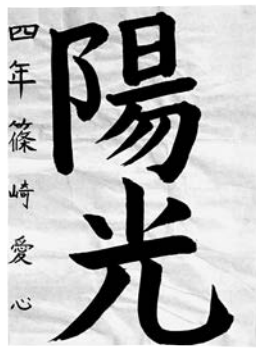 陽光
四年 篠崎愛心